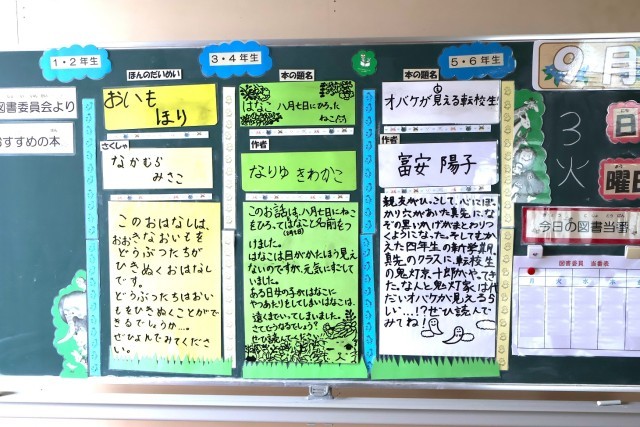 図書委員会より
おすすめの本
1・2年生
ほんのだいめい
おいも
ほり
さくしゃ
なかむら
みさこ
このおはなしは、
おおきなおいもを
どうぶつたちが
ひきぬくおはなし
です。
どうぶつたちはおい
もをひきぬくことがで
きるでしょうか…。
ぜひよんでみてくださ
い。
3・4年生
本の題名
はなこ 八月七日にひろった
ねこだよ
作者
なりゆきわかこ
このお話は、八月七日にねこ
をひろってはなこと名前をつ
けました。
はなこは目がかたほう見え
ないのですが、元気にすごして
いました。
ある日母の子がはなこに
やつあたりをしてしまいはなこは、
遠くまでいってしまいました。
さてどうなるでしょう?
ぜひ読んでください
5・6年生
本の題名
オバケが見える転校生!
作者
富安 陽子
親友がひっこして、心にぽっ
かり穴があいた真先に、な
ぞの黒いかげがまとわりつく
ようになった。そしてむか
えた四年生の新学期、
真先のクラスに、転校生
の鬼灯京十郎がやってき
た。なんと鬼灯家は代
だいオバケが見えるらし
い…!?ぜひ読んで
みてね!
9月
3
火
日
曜日
今日の図書当番
図書委員 当番表
月
火
水
木
金